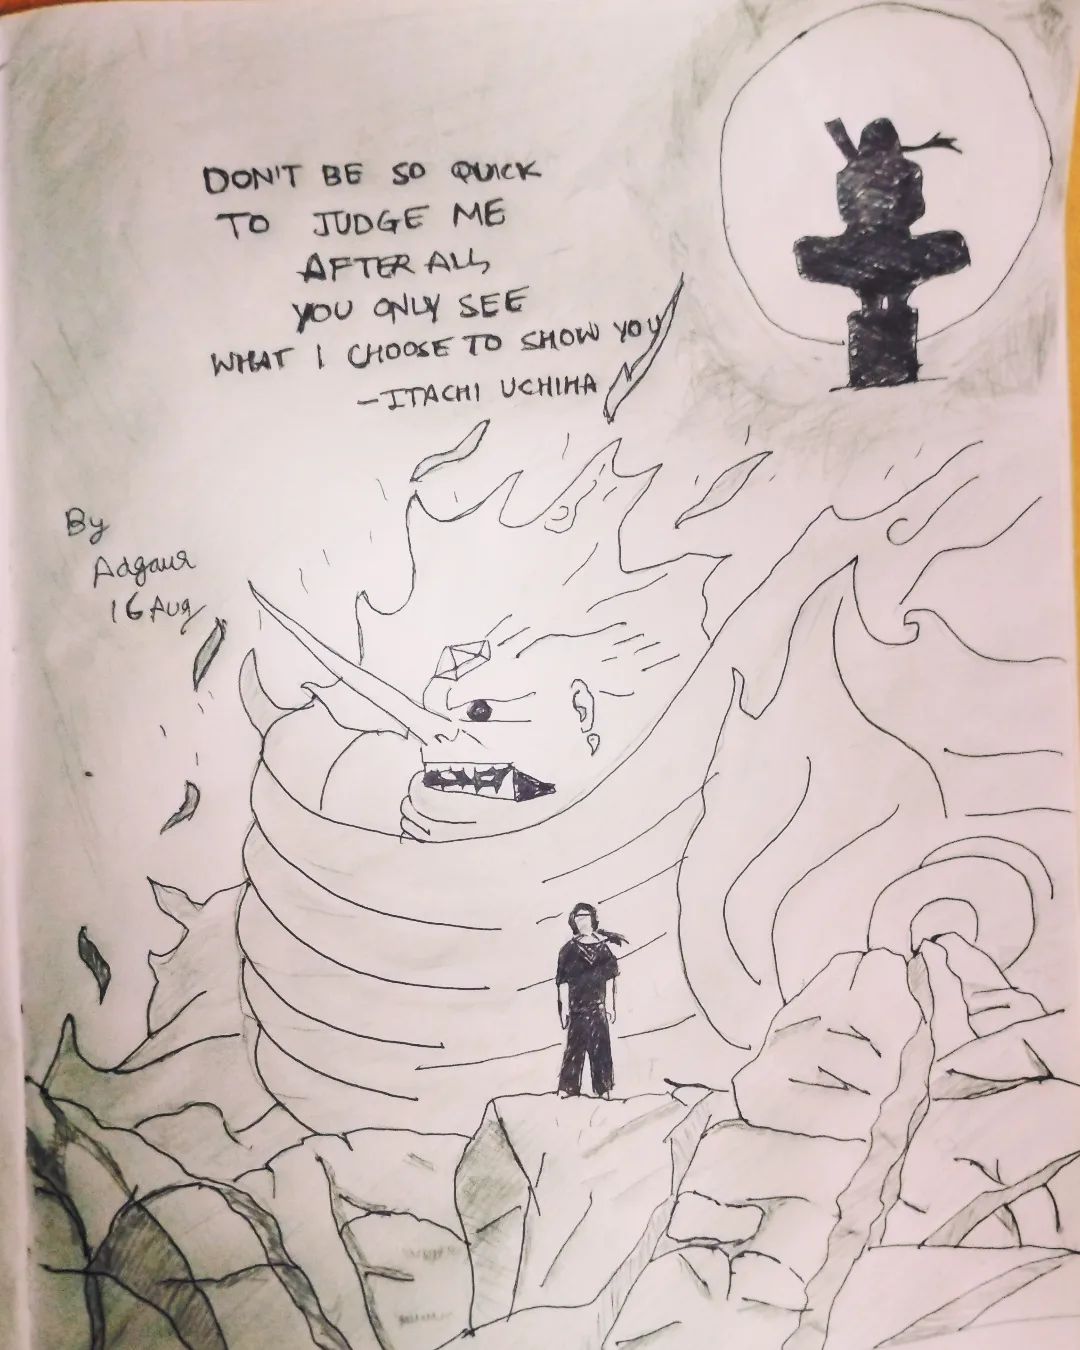 DON'T BE SO QUICK
TO JUDGE ME
AFTER ALL,
YOU ONLY SEE
WHAT I CHOOSE TO SHOW YOU
-ITACHI UCHIHA
By
Adgaur
16 Aug